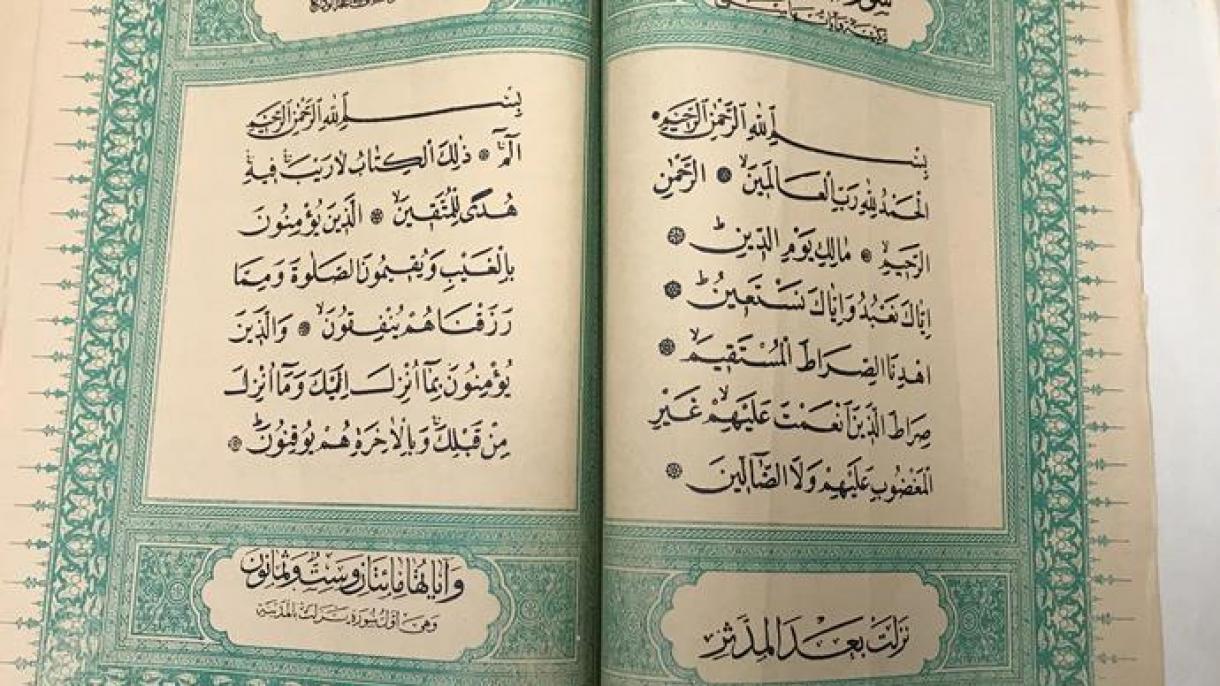 بِسْمِ اللّٰهِ الرَّحْمٰنِ الرَّحِيمِ
اَلْحَمْدُ لِلّٰهِ رَبِّ الْعَالَمِينَۙ ۞ اَلرَّحْمٰنِ
الرَّحِيمِۙ ۞ مَالِكِ يَوْمِ الدِّينِۜ ۞
اِيَّاكَ نَعْبُدُ وَاِيَّاكَ نَسْتَعِينُۜ ۞
اِهْدِنَا الصِّرَاطَ الْمُسْتَقِيمَۙ ۞
صِرَاطَ الَّذِينَ اَنْعَمْتَ عَلَيْهِمْۙ غَيْرِ
الْمَغْضُوبِ عَلَيْهِمْ وَلَا الضَّٓالِّينَ ۞
نزلت بعد المدثر
بِسْمِ اللّٰهِ الرَّحْمٰنِ الرَّحِيمِ
الٓمٓۚ ۞ ذٰلِكَ الْكِتَابُ لَا رَيْبَۚ فِيهِۚ
هُدًى لِلْمُتَّقِينَۙ ۞ اَلَّذِينَ يُؤْمِنُونَ
بِالْغَيْبِ وَيُقِيمُونَ الصَّلٰوةَ وَمِمَّا
رَزَقْنَاهُمْ يُنْفِقُونَۙ ۞ وَالَّذِينَ
يُؤْمِنُونَ بِمَٓا اُنْزِلَ اِلَيْكَ وَمَٓا اُنْزِلَ
مِنْ قَبْلِكَۚ وَبِالْاٰخِرَةِ هُمْ يُوقِنُونَۜ ۞
وآياتها مائتان وست وثمانون
وهي أول سورة نزلت بالمدينة